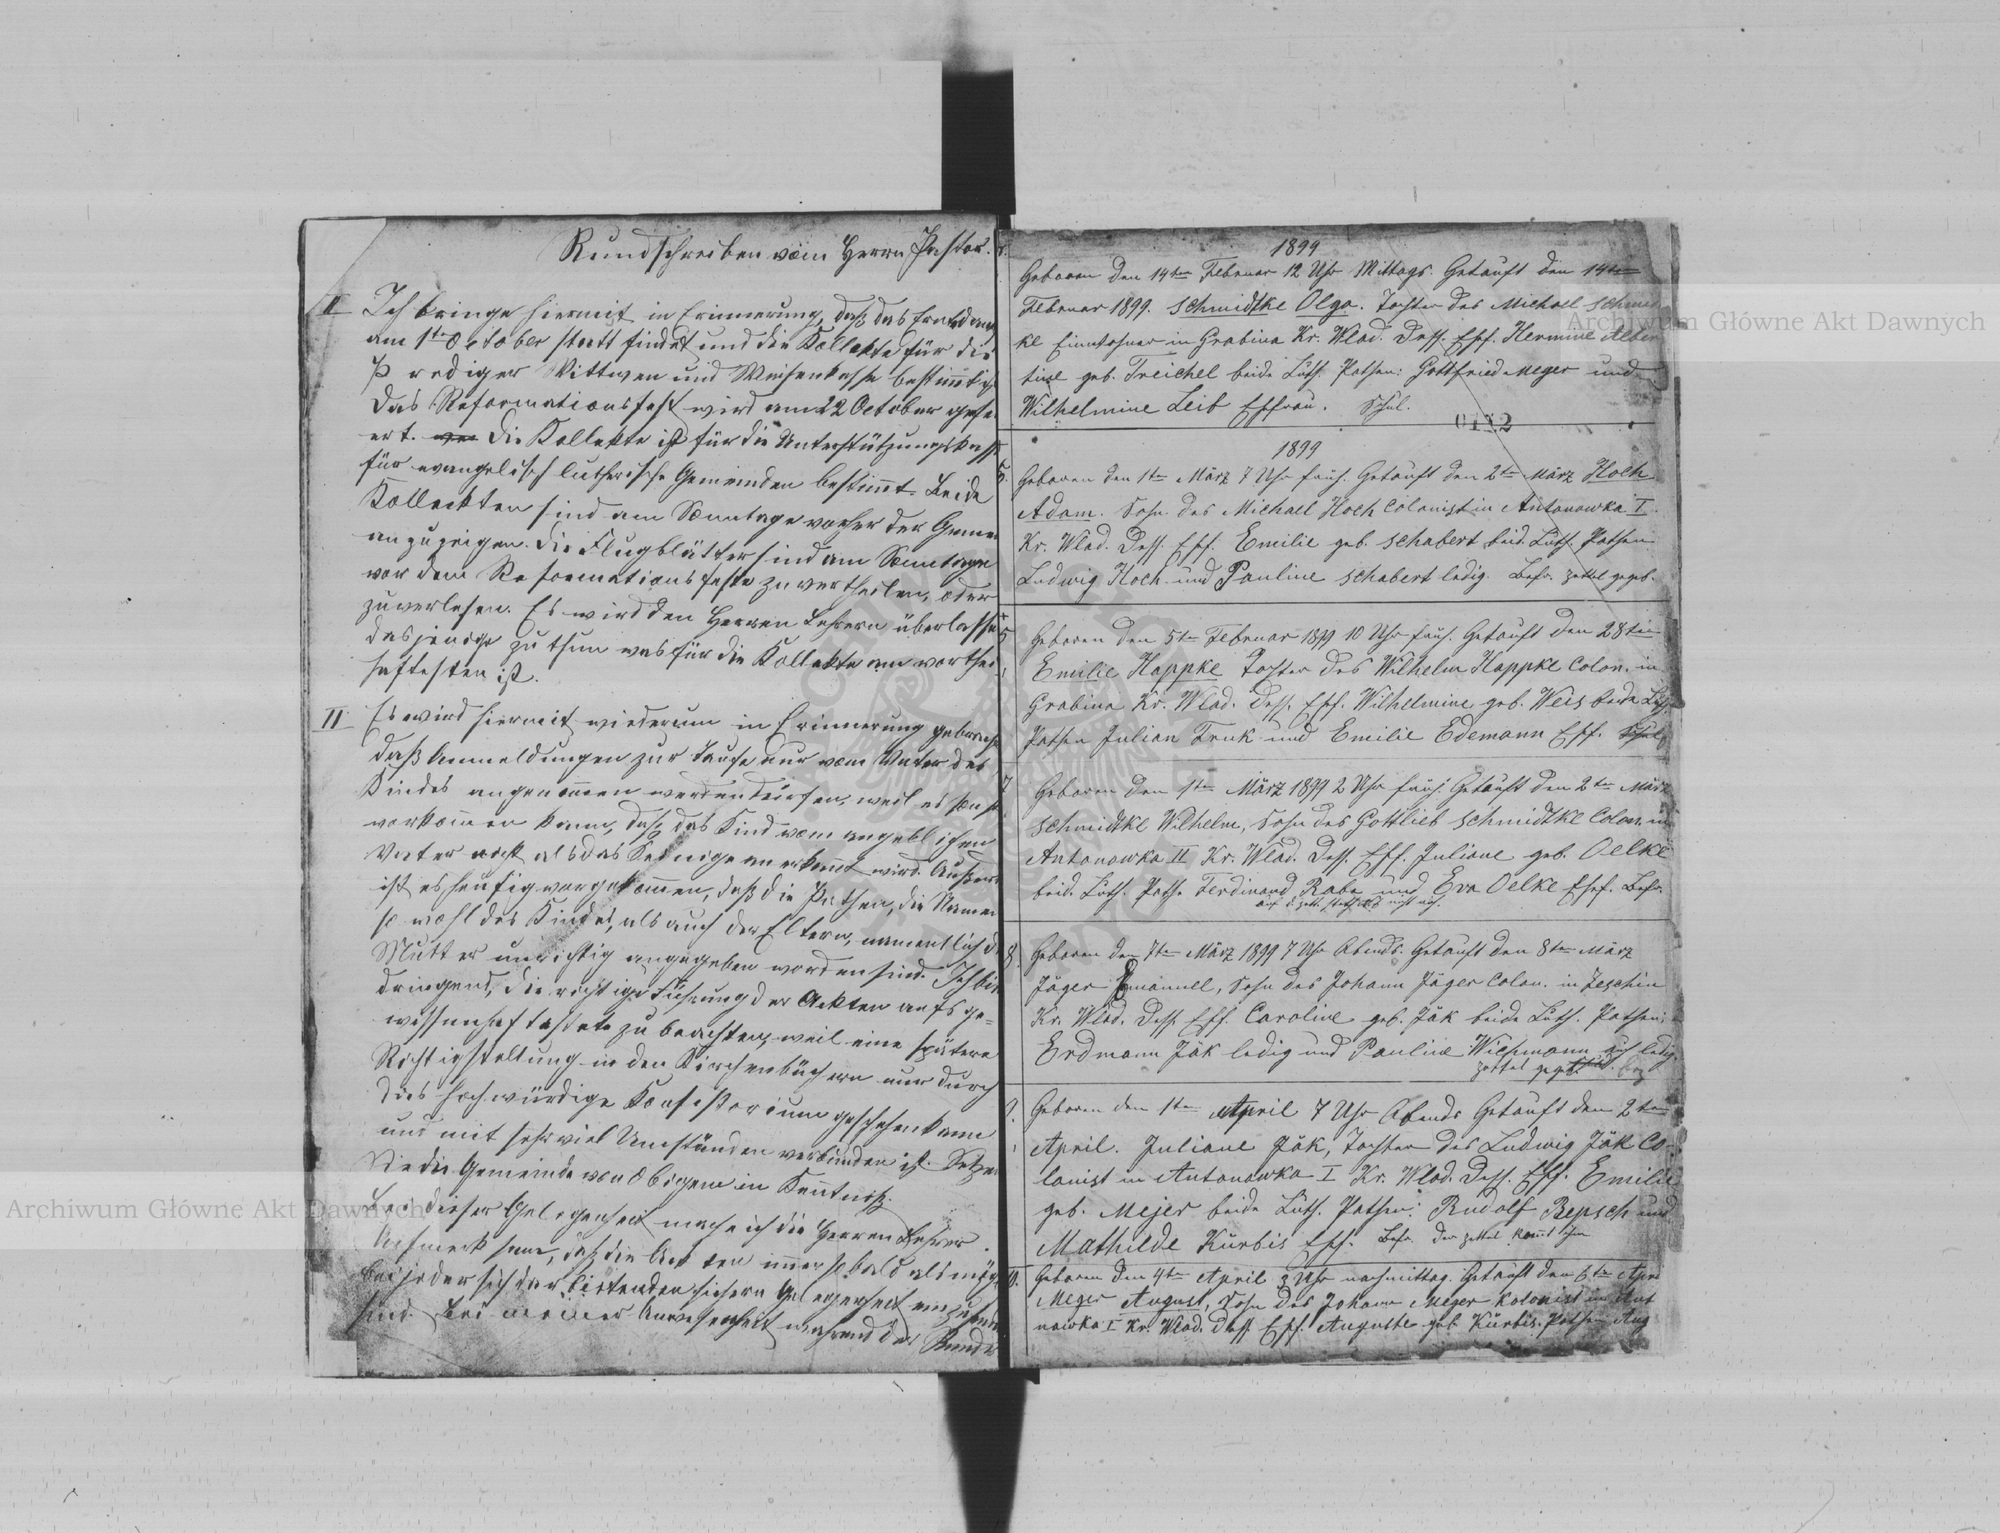 Rundschreiben vom Herrn Pastor.
II Ich bringe hiermit in Erinnerung, daß das Erntedank
am 1ten October statt findet und die Kollekte für die
Prediger Wittwen und Waisenkasse bestimmt ist
Das Reformationsfest wird am 22 October gefei
ert. Die Kollekte ist für die Unterstützungskasse
für evangelisch lutherische Gemeinden bestimmt. Beide
Kollekten sind am Sonntage vorher der Gemei
anzuzeigen. Die Flugblätter sind am Sonntage
vor dem Reformationsfeste zu vertheilen, oder
zu verlesen. Es wird den Herren Lehrern überlassen
dasjenige zu thun was für die Kollekte am vorthei
haftesten ist.
II Es wird hiermit wiederum in Erinnerung gebracht
daß Anmeldungen zur Taufe nur vom Vater des
Kindes angenommen werden dürfen, weil es sonst
vorkommen kann, daß das Kind vom angeblichen
Vater nicht als das Seinige anerkannt wird. Außerd
ist es häufig vorgekommen, daß die Pathen, die Namen
so wohl des Kindes, als auch der Eltern, namentlich d
Mutter unrichtig angegeben worden sind. Ich bit
dringend, die richtige Führung der Akten aufs ge=
wissenhafteste zu beachten, weil eine spätere
Richtigstellung in den Kirchenbüchern nur durch
das hochwürdige Konsistorium geschehen kann
und mit sehr viel Umständen verbunden ist. Setzen
Sie die Gemeinde von Obigem in Kenntniß.
Bei dieser Gelegenheit mache ich die Herren Lehrer
Aufmerksam, daß die Akten immer so bald als mög
bei jeder sich darbietenden sichern Gelegenheit einzusend
sind. Bei meiner Anwesenheit während der
1899
Geboren den 14ten Februar 12 Uhr Mittags. Getauft den 14ten
Februar 1899. Schmidtke Olga. Tochter des Michael Schmid
ke Einwohner in Grabina Kr. Wlad. Dess. Ehf. Hermine Alber
tine geb. Treichel beide Luth. Pathen: Gottfried Meger und
Wilhelmine Leib Ehfrau. Schul.
1899
Geboren den 1ten März 7 Uhr früh. Getauft den 2ten März Hoch
Adam. Sohn des Michael Hoch Colonist in Antonowka I.
Kr. Wlad. Dess. Ehf. Emilie geb. Schabert beid. Luth. Pathen
Ludwig Hoch und Pauline Schabert ledig. Befr. Zettel gegeb.
Geboren den 5ten Februar 1899 10 Uhr früh. Getauft den 28ten
Emilie Happke Tochter des Wilhelm Happke Colon. in
Grabina Kr. Wlad. Dess. Ehf. Wilhelmine geb. Weis beide Luth.
Pathen Julian Truk und Emilie Edemann Ehf. Schul
7 Geboren den 1ten März 1899 2 Uhr früh. Getauft den 2ten März
Schmidtke Wilhelm, Sohn des Gottlieb Schmidtke Colon. in
Antonowka II Kr. Wlad. Dess. Ehf. Juliane geb. Oelke
beid. Luth. Path. Ferdinand Rabe und Eva Oelke Ehef. Befr.
8. Geboren den 7ten März 1899 7 Uhr Abends. Getauft den 8ten März
Jäger Emanuell, Sohn des Johann Jäger Colon. in Zeschin
Kr. Wlad. Dess. Ehf. Caroline geb. Jäk beide Luth. Pathen;
Erdmann Jäk ledig und Pauline Wichmann auch ledig.
Zettel gegeb.
9. Geboren den 1ten April 7 Uhr Abends Getauft den 2ten
April. Juliane Jäk, Tochter des Ludwig Jäk Co-
lonist in Antonowka I Kr. Wlad. Dess. Ehf. Emilie
geb. Mejer beide Luth. Pathen: Rudolf Repsch und
Mathilde Kürbis Ehf. Befr. Der Zettel kommt
10. Geboren den 4ten April 3 Uhr nachmittag. Getauft den 6ten Apri
Meger August, Sohn des Johann Meger Kolonist in Ant
nowka I Kr. Wlad. Dess. Ehf. Auguste geb. Kürbis. Pathen Aug
Archiwum Główne Akt Dawnych
Archiwum Główne Akt Dawnych